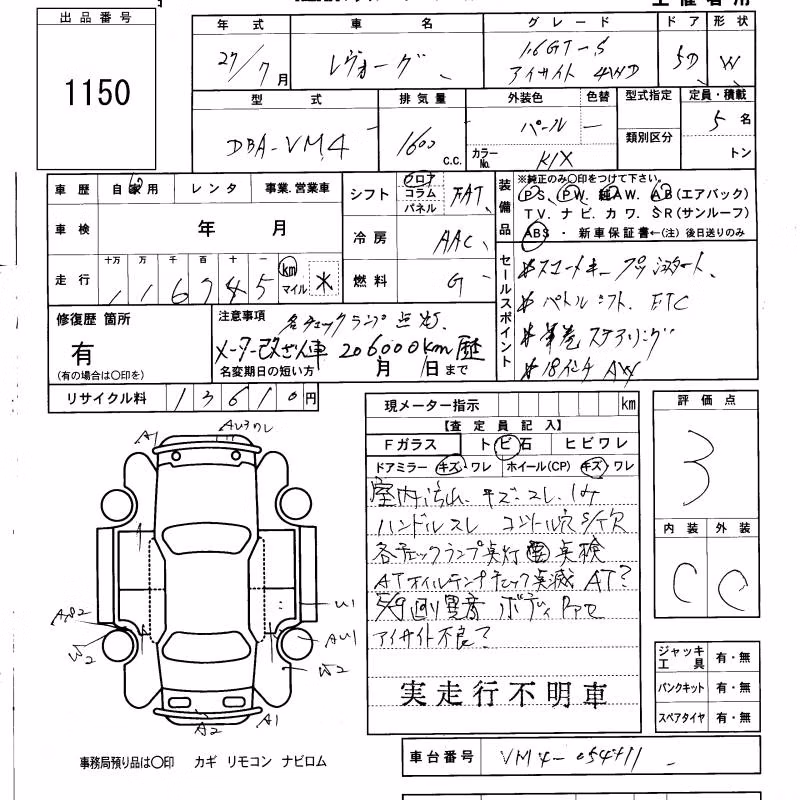 出品番号
1150
年式 車名 グレード ドア 形状
27/7月 レヴォーグ 1.6GT-S アイサイト 4WD 5D W
型式 排気量 外装色 色替 型式指定 定員・積載
DBA-VM4 1600 c.c. パール ー 類別区分 5名
カラーNo. K1X トン
車歴 自家用 レンタ 事業.営業車
シフト フロア コラム パネル FAT
装備品 ※純正のみ○印をつけて下さい。
PS、PW、純AW、AB(エアバック)
TV.ナビ.カワ.SR(サンルーフ)
ABS・新車保証書←(注)後日送りのみ
車検 年 月
冷房 AAC
走行 十万 万 千 百 十 一 km マイル ※
116745
燃料 G
セールスポイント
※スマートキー プッシュスタート
※パドルシフト ETC
※革巻ステアリング
※18インチ AW
修復歴 箇所
有
(有の場合は○印を)
注意事項
各チェックランプ点灯
メーター改ざん車 206000km歴
名変期日の短い方 月 日まで
リサイクル料 13610円
現メーター指示 km
【査定員記入】
Fガラス トビ石 ヒビワレ
ドアミラー キズ・ワレ ホイール(CP) キズ・ワレ
室内汚れ キズ・スレ・シミ
ハンドルスレ
各チェックランプ点灯 要点検
ATオイルテンプチェック点滅 AT?
異音 ボディ
アイサイト不良?
実走行不明車
評価点
3
内装 外装
C C
ジャッキ工具 有・無
パンクキット 有・無
スペアタイヤ 有・無
A1
W2
U1
AU1
W2
A1
A2
事務局預り品は○印 カギ リモコン ナビロム
車台番号 VM4-054411